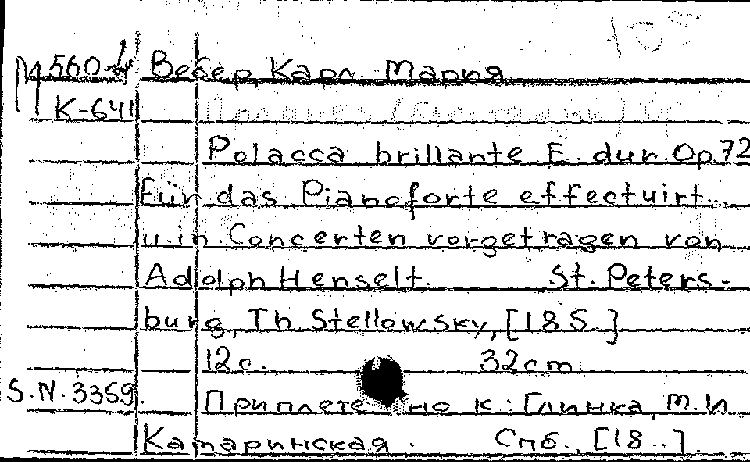 М560-4 Вебер, Карл-Мария
К-641
Polacca brillante E dur Op. 72
Für das Pianoforte effectuirt
u. in Concerten vorgetragen von
Adolph Henselt St. Peters-
burg, Th. Stellowsky, [185 ]
12 с. 32 cm
S.N. 3359. Приплетено к: Глинка, М.И.
Камаринская. Спб., [18..]